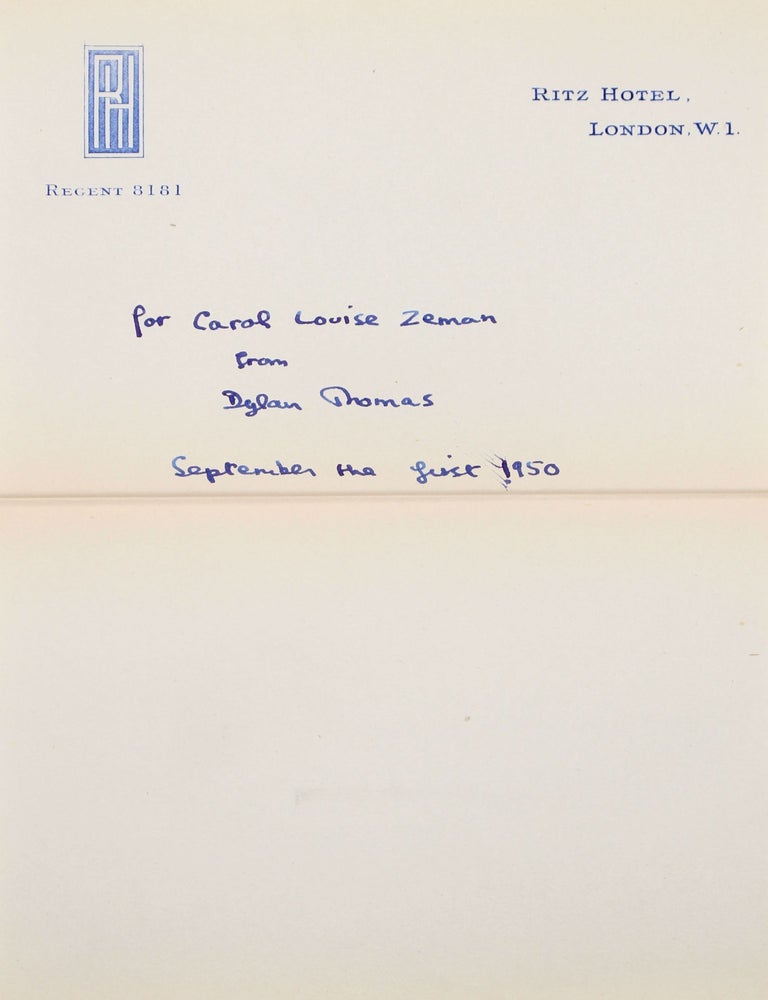 RH
RITZ HOTEL,
LONDON, W. 1.
REGENT 8181
for Carol Louise Zeman
from
Dylan Thomas
September the first 1950